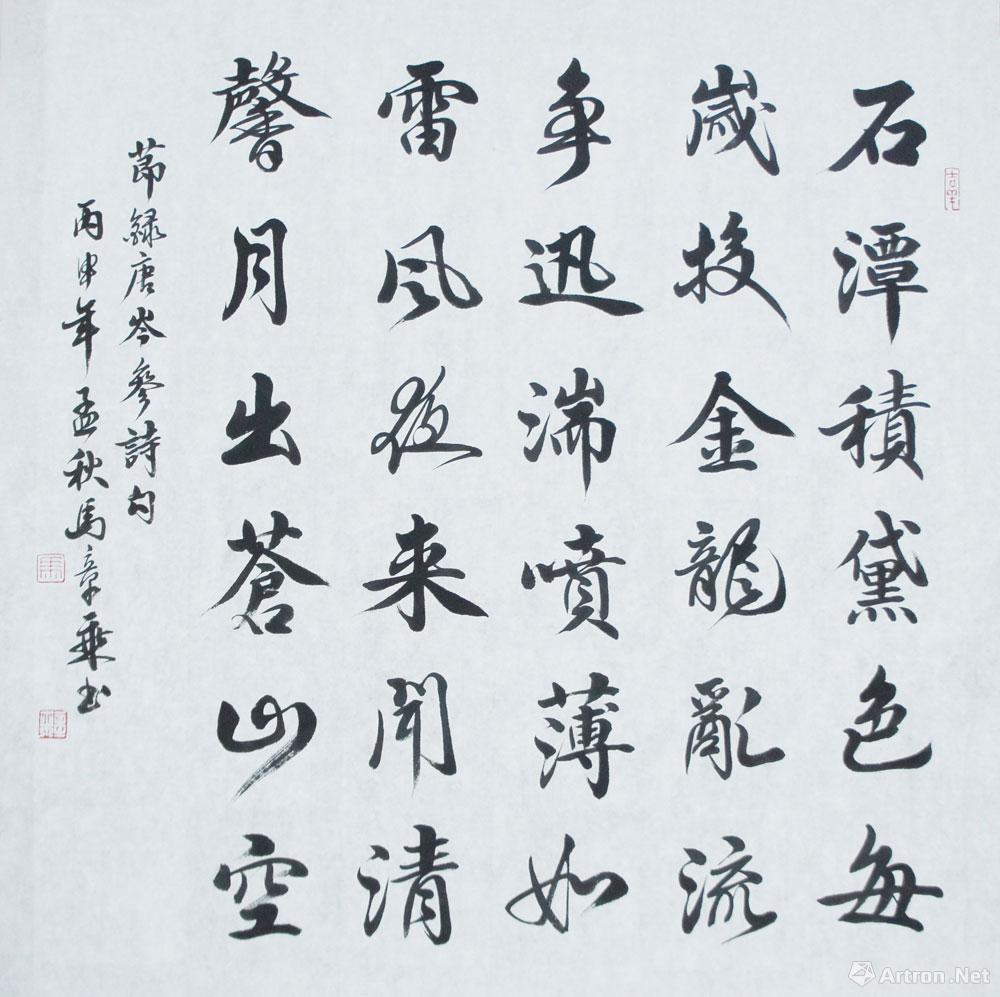 石潭積黛色每
歲投金龍亂流
爭迅湍噴薄如
雷風夜来聞清
馨月出蒼山空
節錄唐岑參詩句
丙申年孟秋馬章乘书
Artron.Net